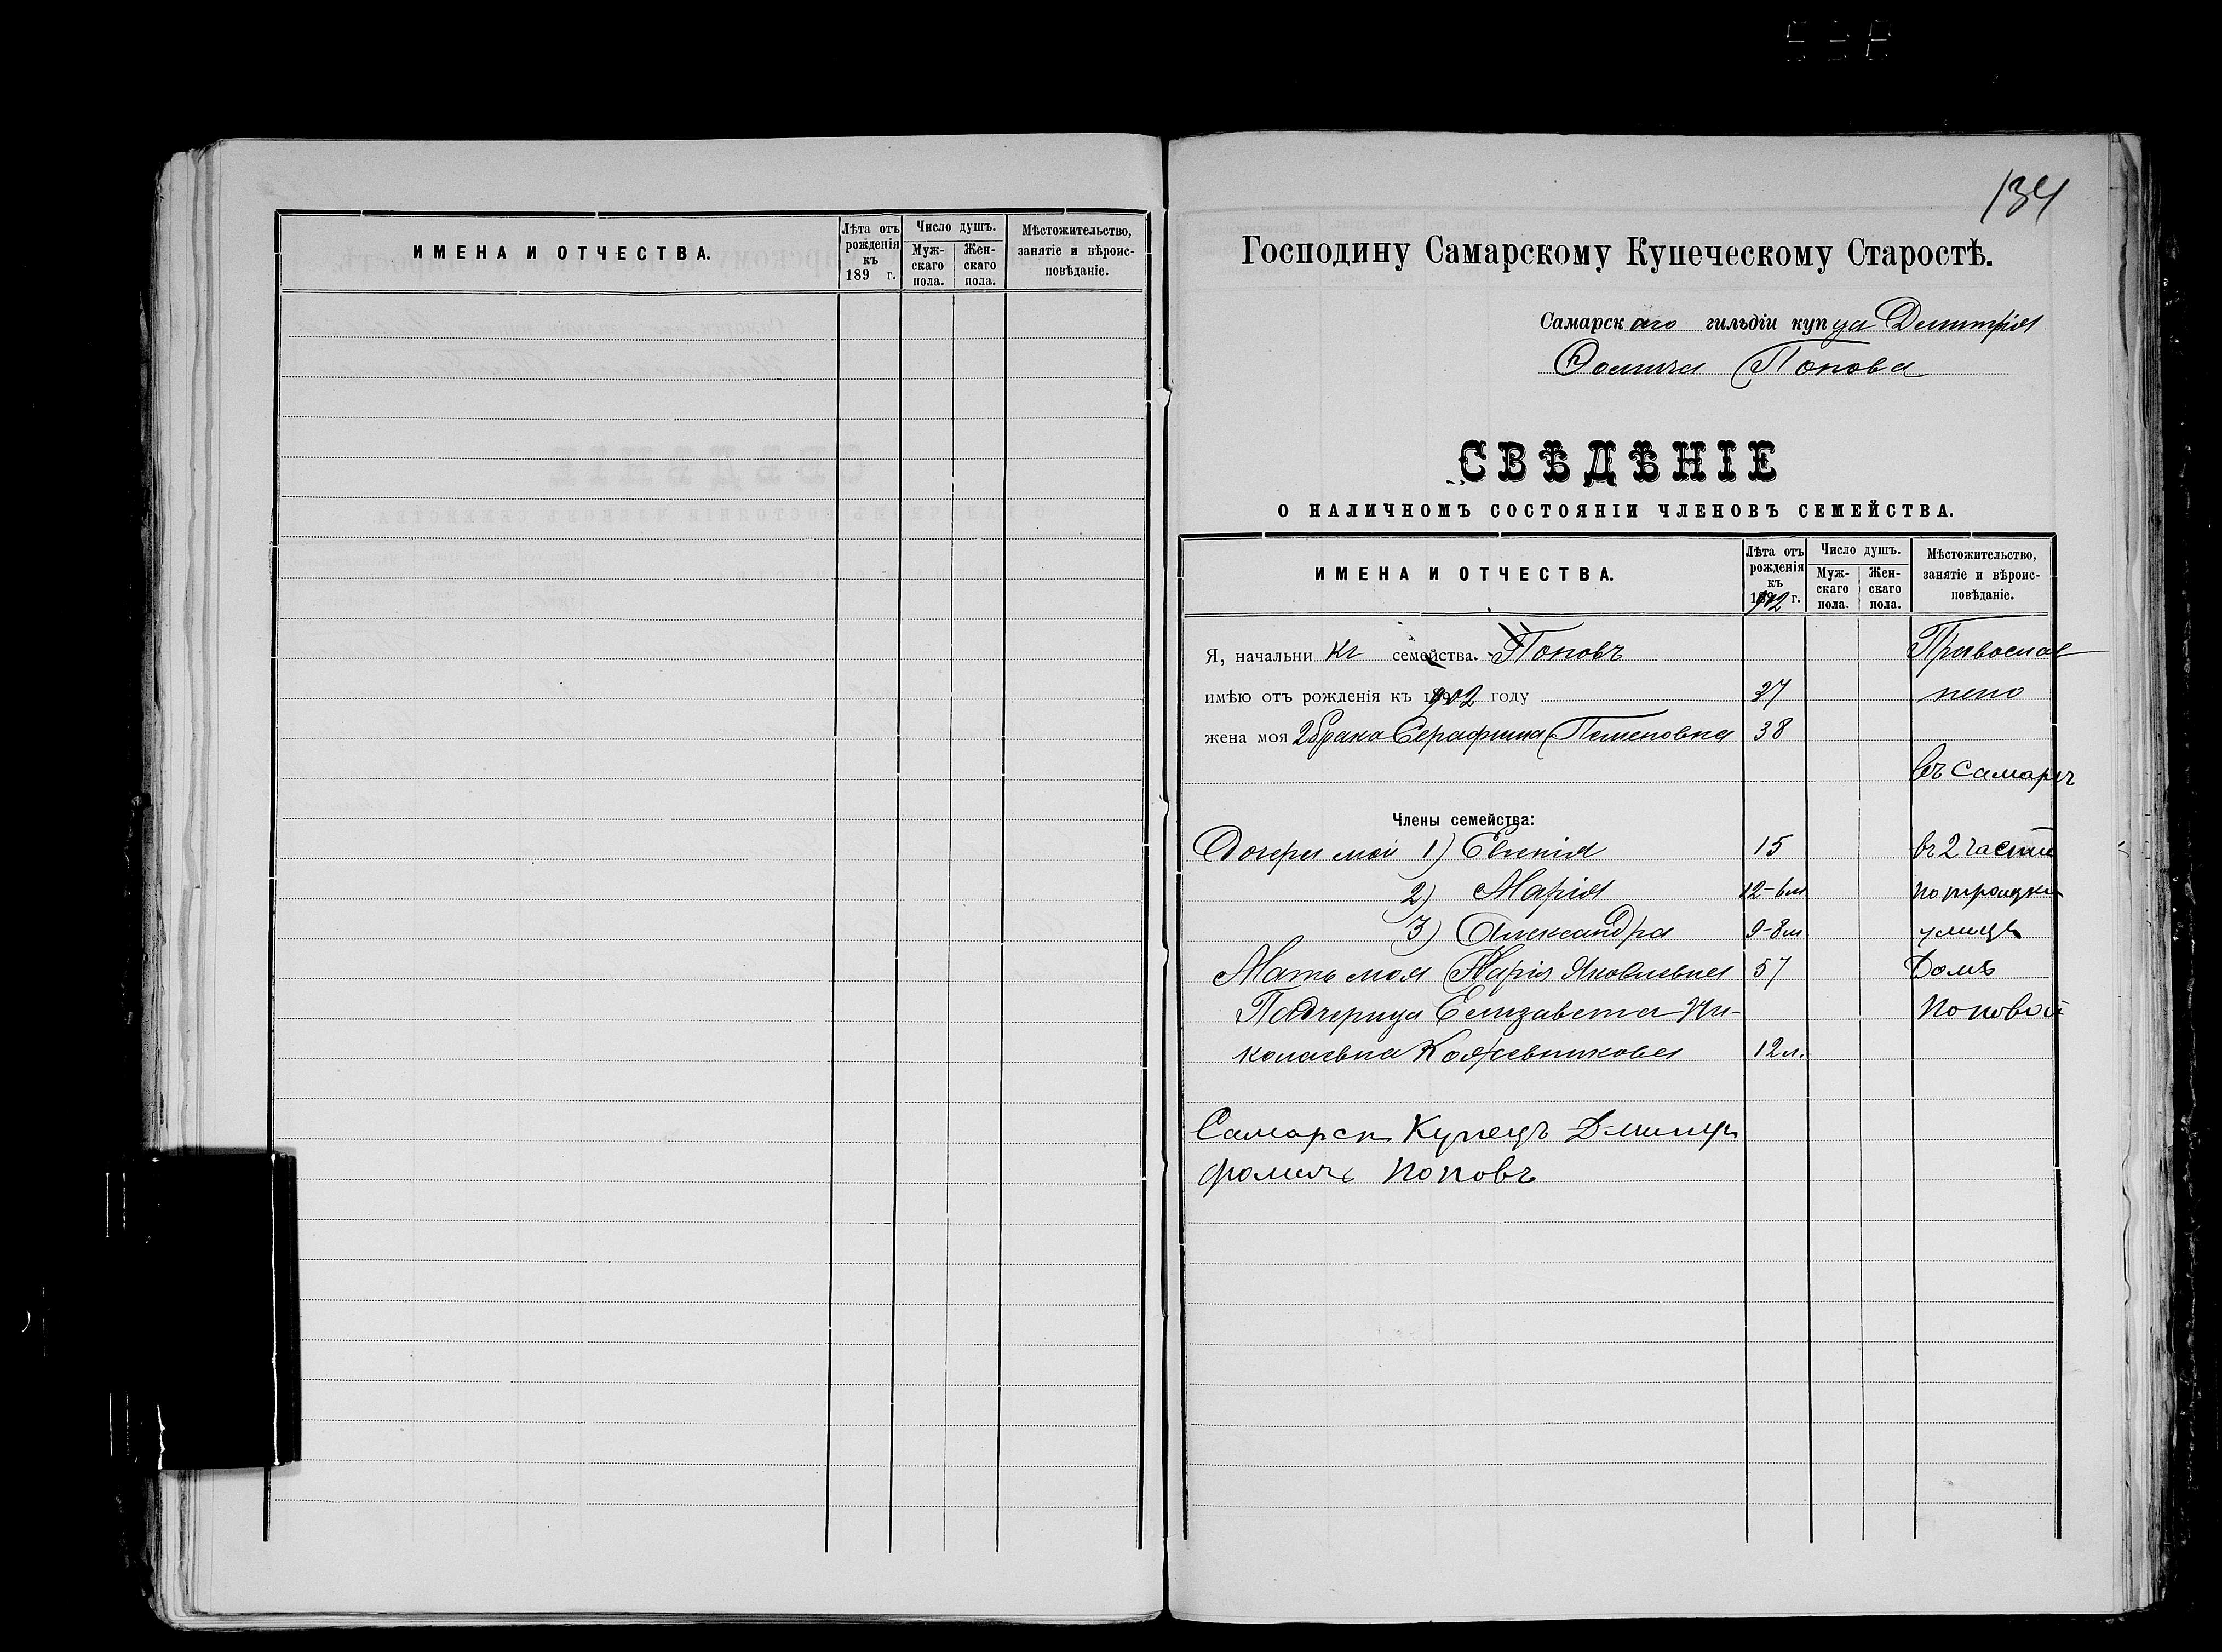 ИМЕНА И ОТЧЕСТВА.
Лѣта отъ рожденія къ 189 г.
Число душъ.
Муж-скаго пола.
Жен-скаго пола.
Мѣстожительство, занятіе и вѣроис-повѣданіе.
134
Господину Самарскому Купеческому Старостѣ.
Самарск аго гильдіи куп ца Димитрія
Фомича Попова
СВѢДѢНІЕ
О НАЛИЧНОМЪ СОСТОЯНІИ ЧЛЕНОВЪ СЕМЕЙСТВА.
ИМЕНА И ОТЧЕСТВА.
Лѣта отъ рожденія къ 1902 г.
Число душъ.
Муж-скаго пола.
Жен-скаго пола.
Мѣстожительство, занятіе и вѣроис-повѣданіе.
Я, начальни къ семейства. Поповъ Православ
имѣю отъ рожденія къ 1902 году 37
жена моя 2 брака Серафима Пименовна 38
въ Самарѣ
Члены семейства:
Дочери мои 1) Евгенія 15 въ 2 части
2) Марія 12-6м по троицкй
3) Александра 9-8м улицѣ
Мать моя Марія Яковлевна 57 Домъ
Падчерица Елизавета Ни- Поповой
колаевна Кожевникова 12 л.
Самарск Купецъ Дмитр
Поповъ